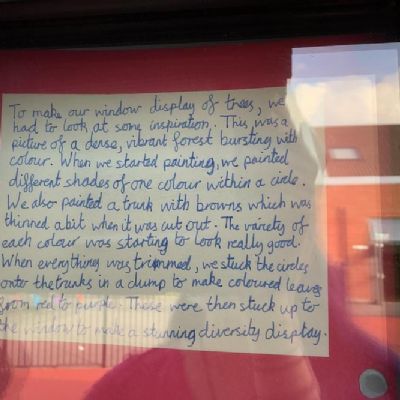 To make our window display of trees, we
had to look at some inspiration. This was a
picture of a dense, vibrant forest bursting with
colour. When we started painting, we painted
different shades of one colour within a circle.
We also painted a trunk with browns which was
thinned a bit when it was cut out. The variety of
each colour was starting to look really good.
When everything was trimmed, we stuck the circles
onto the trunks in a clump to make coloured leaves
from red to purple. These were then stuck up to
the window to make a stunning diversity display.